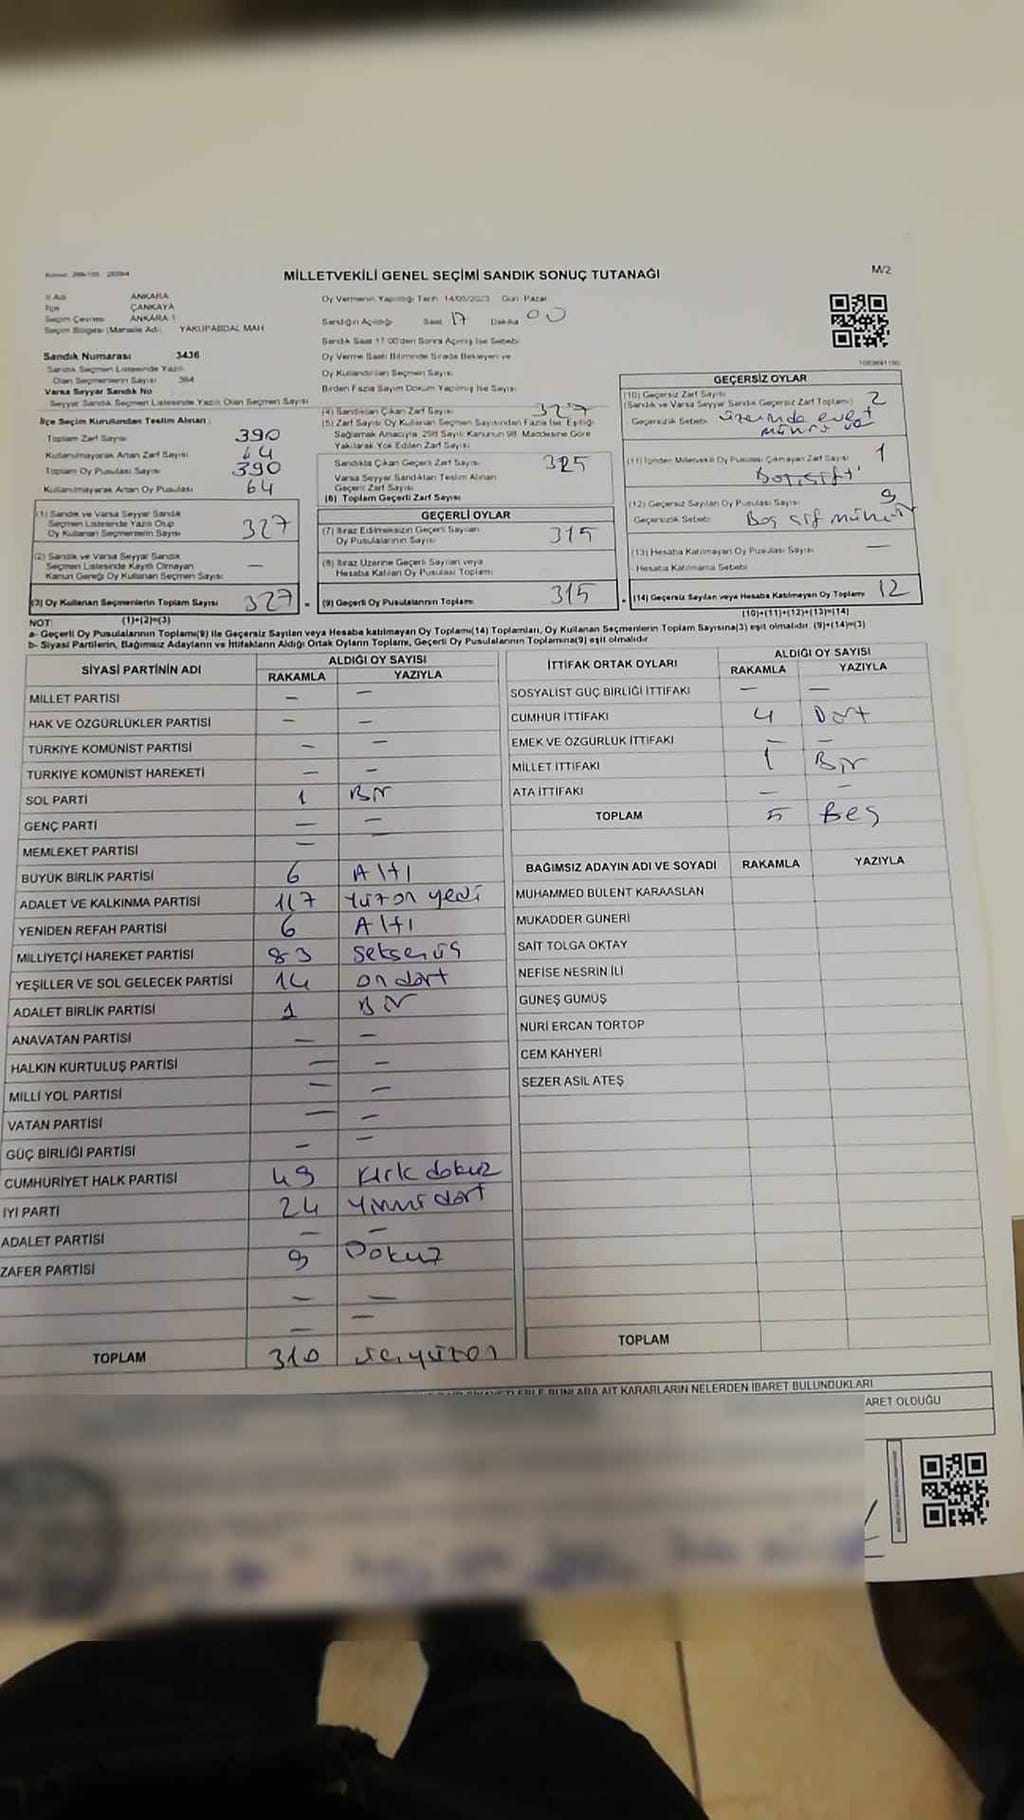 MİLLETVEKİLİ GENEL SEÇİMİ SANDIK SONUÇ TUTANAĞI
M/2
İl Adı ANKARA
İlçe ÇANKAYA
Seçim Çevresi ANKARA 1
Seçim Bölgesi (Mahalle Adı) YAKUPABDAL MAH
Sandık Numarası 3436
Sandık Seçmen Listesinde Yazılı
Olan Seçmenlerin Sayısı 384
Varsa Seyyar Sandık No
Seyyar Sandık Seçmen Listesinde Yazılı Olan Seçmen Sayısı
Oy Vermenin Yapıldığı Tarih 14/05/2023 Gün Pazar
Sandığın Açıldığı Saat 17 Dakika 00
Sandık Saat 17:00'den Sonra Açılmış İse Sebebi
Oy Verme Saati Bitiminde Sırada Bekleyen ve
Oy Kullandırılan Seçmen Sayısı
Birden Fazla Sayım Döküm Yapılmış İse Sayısı
İlçe Seçim Kurulundan Teslim Alınan :
Toplam Zarf Sayısı 390
Kullanılmayarak Artan Zarf Sayısı 64
Toplam Oy Pusulası Sayısı 390
Kullanılmayarak Artan Oy Pusulası 64
(1) Sandık ve Varsa Seyyar Sandık
Seçmen Listesinde Yazılı Olup
Oy Kullanan Seçmenlerin Sayısı 327
(2) Sandık ve Varsa Seyyar Sandık
Seçmen Listesinde Kayıtlı Olmayan
Kanun Gereği Oy Kullanan Seçmen Sayısı —
(3) Oy Kullanan Seçmenlerin Toplam Sayısı 327
(1)+(2)=(3)
(4) Sandıktan Çıkan Zarf Sayısı 327
(5) Zarf Sayısı Oy Kullanan Seçmen Sayısından Fazla İse, Eşitliği
Sağlamak Amacıyla, 298 Sayılı Kanunun 98. Maddesine Göre
Yakılarak Yok Edilen Zarf Sayısı
Sandıkta Çıkan Geçerli Zarf Sayısı 325
Varsa Seyyar Sandıktan Teslim Alınan
Geçerli Zarf Sayısı
(6) Toplam Geçerli Zarf Sayısı
GEÇERLİ OYLAR
(7) İtiraz Edilmeksizin Geçerli Sayılan
Oy Pusulalarının Sayısı 315
(8) İtiraz Üzerine Geçerli Sayılan veya
Hesaba Katılan Oy Pusulası Toplamı
(9) Geçerli Oy Pusulalarının Toplamı 315
GEÇERSİZ OYLAR
(10) Geçersiz Zarf Sayısı
(Sandık ve Varsa Seyyar Sandık Geçersiz Zarf Toplamı) 2
Geçersizlik Sebebi üzerinde evet
mührü
(11) İçinden Milletvekili Oy Pusulası Çıkmayan Zarf Sayısı 1
(12) Geçersiz Sayılan Oy Pusulası Sayısı 9
Geçersizlik Sebebi Boş
(13) Hesaba Katılmayan Oy Pusulası Sayısı —
Hesaba Katılmama Sebebi
(14) Geçersiz Sayılan veya Hesaba Katılmayan Oy Toplamı 12
(10)+(11)+(12)+(13)=(14)
NOT:
a- Geçerli Oy Pusulalarının Toplamı(9) ile Geçersiz Sayılan veya Hesaba katılmayan Oy Toplamı(14) Toplamları, Oy Kullanan Seçmenlerin Toplam Sayısına(3) eşit olmalıdır. (9)+(14)=(3)
b- Siyasi Partilerin, Bağımsız Adayların ve İttifakların Aldığı Ortak Oyların Toplamı, Geçerli Oy Pusulalarının Toplamına(9) eşit olmalıdır
SİYASİ PARTİNİN ADI ALDIĞI OY SAYISI
RAKAMLA YAZIYLA
MİLLET PARTİSİ — —
HAK VE ÖZGÜRLÜKLER PARTİSİ — —
TÜRKİYE KOMÜNİST PARTİSİ — —
TÜRKİYE KOMÜNİST HAREKETİ — —
SOL PARTİ 1 Bir
GENÇ PARTİ — —
MEMLEKET PARTİSİ — —
BÜYÜK BİRLİK PARTİSİ 6 Altı
ADALET VE KALKINMA PARTİSİ 117 Yüzon yedi
YENİDEN REFAH PARTİSİ 6 Altı
MİLLİYETÇİ HAREKET PARTİSİ 83 Seksenüç
YEŞİLLER VE SOL GELECEK PARTİSİ 14 on dört
ADALET BİRLİK PARTİSİ 1 Bir
ANAVATAN PARTİSİ — —
HALKIN KURTULUŞ PARTİSİ — —
MİLLİ YOL PARTİSİ — —
VATAN PARTİSİ — —
GÜÇ BİRLİĞİ PARTİSİ — —
CUMHURİYET HALK PARTİSİ 49 Kırk dokuz
İYİ PARTİ 24 Yirmi dört
ADALET PARTİSİ — —
ZAFER PARTİSİ 9 Dokuz
— —
— —
TOPLAM 310 üçyüzon
İTTİFAK ORTAK OYLARI ALDIĞI OY SAYISI
RAKAMLA YAZIYLA
SOSYALİST GÜÇ BİRLİĞİ İTTİFAKI — —
CUMHUR İTTİFAKI 4 Dört
EMEK VE ÖZGÜRLÜK İTTİFAKI — —
MİLLET İTTİFAKI 1 Bir
ATA İTTİFAKI — —
TOPLAM 5 Beş
BAĞIMSIZ ADAYIN ADI VE SOYADI RAKAMLA YAZIYLA
MUHAMMED BÜLENT KARAASLAN
MUKADDER GÜNERİ
SAİT TOLGA OKTAY
NEFİSE NESRİN İLİ
GÜNEŞ GÜMÜŞ
NURİ ERCAN TORTOP
CEM KAHYERİ
SEZER ASİL ATEŞ
TOPLAM
BUNLARA AİT KARARLARIN NELERDEN İBARET BULUNDUKLARI
ARET OLDUĞU